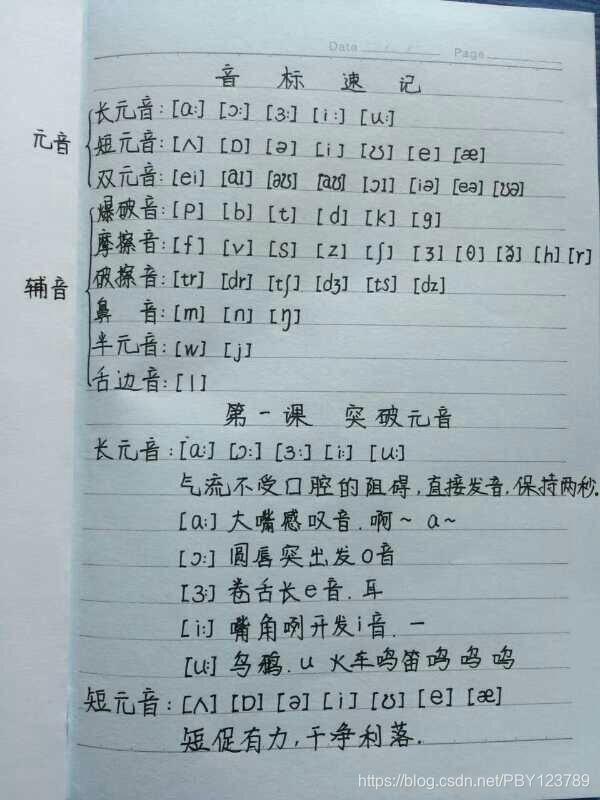 Date / / Page
音标速记
元音
长元音:[ɑ:] [ɔ:] [ɜ:] [i:] [u:]
短元音:[ʌ] [ɒ] [ə] [i] [ʊ] [e] [æ]
双元音:[ei] [aɪ] [əʊ] [aʊ] [ɔɪ] [iə] [eə] [ʊə]
辅音
爆破音:[p] [b] [t] [d] [k] [g]
摩擦音:[f] [v] [s] [z] [ʃ] [ʒ] [θ] [ð] [h] [r]
破擦音:[tr] [dr] [tʃ] [dʒ] [ts] [dz]
鼻 音:[m] [n] [ŋ]
半元音:[w] [j]
舌边音:[l]
第一课 突破元音
长元音:[ɑ:] [ɔ:] [ɜ:] [i:] [u:]
气流不受口腔的阻碍,直接发音,保持两秒.
[ɑ:] 大嘴感叹音.啊~ a~
[ɔ:] 圆唇突出发o音
[ɜ:] 卷舌长e音.耳
[i:] 嘴角咧开发i音.一
[u:] 乌鸦.u 火车鸣笛呜呜呜
短元音:[ʌ] [ɒ] [ə] [i] [ʊ] [e] [æ]
短促有力,干净利落.
https://blog.csdn.net/PBY123789